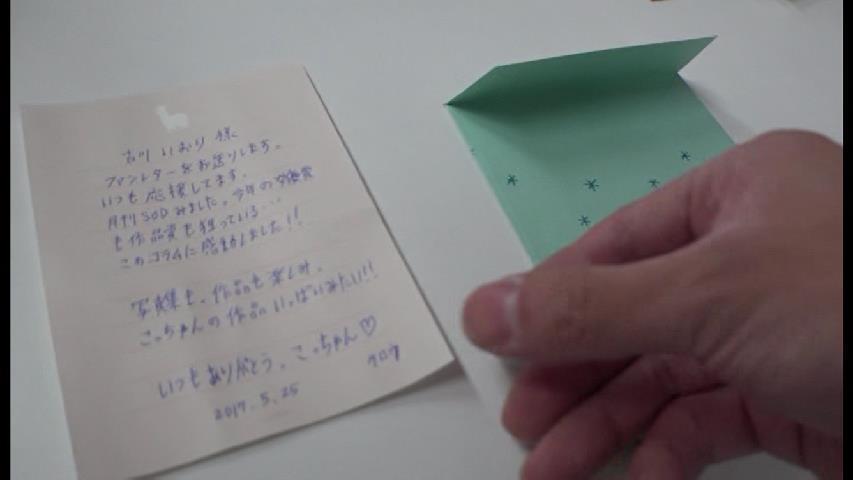 古川 いおり 様
ファンレターをお送りします。
いつも応援してます。
月刊SODみました。今年の
も作品賞も狙っている…
このコラムに感動しました!!
写真集も、作品も楽しみ。
こっちゃんの作品いっぱいみたい!!
いつもありがとう。こっちゃん♡
2017.5.25